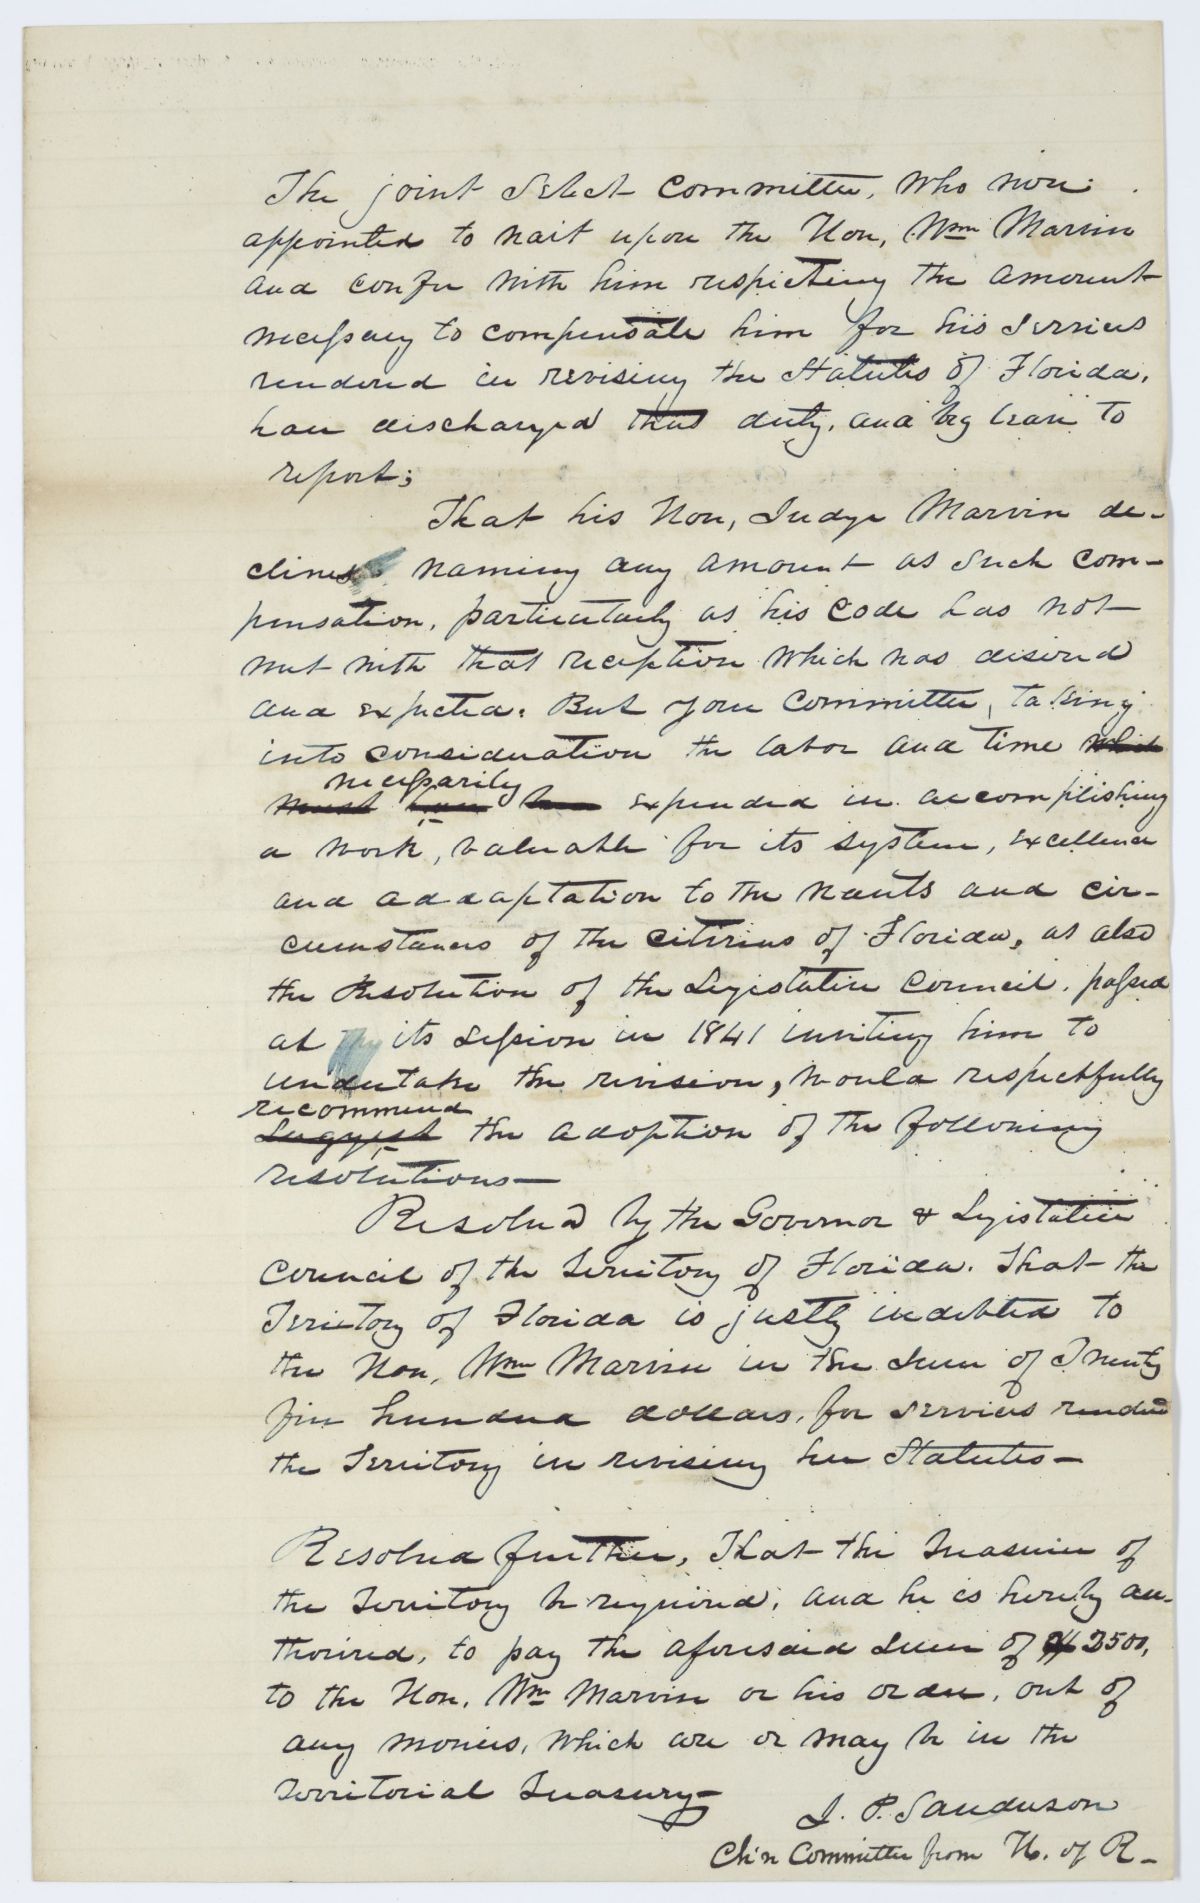 The joint Select Committee, who were
appointed to wait upon the Hon, Wm Marvin
and confer with him respecting the amount
necessary to compensate him for his services
rendered in revising the Statutes of Florida,
have discharged that duty, and beg leave to
report;
That his Hon, Judge Marvin de-
clines naming any amount as such com-
pensation, particularly as his code has not
met with that reception which was desired
and expected. But your Committee, taking
into consideration the labor and time which
necessarily
must have been expended in accomplishing
a work, valuable for its system, excellence
and addaptation to the wants and cir-
cumstances of the citizens of Florida, as also
the Resolution of the Legislative Council, passed
at its session in 1841 inviting him to
undertake the revision, would respectfully
recommend
suggest the adoption of the following
resolutions—
Resolved by the Governor & Legislative
Council of the Territory of Florida. That the
Territory of Florida is justly indebted to
the Hon, Wm Marvin in the sum of Twenty
five hundred dollars, for services rendered
the Territory in revising her Statutes—
Resolved further, That the Treasurer of
the Territory be required, and he is hereby au-
thorized, to pay the aforesaid sum of $2500,
to the Hon, Wm Marvin or his order, out of
any monies, which are or may be in the
Territorial Treasury—
J. P. Sanderson
Ch'n Committee from H. of R—